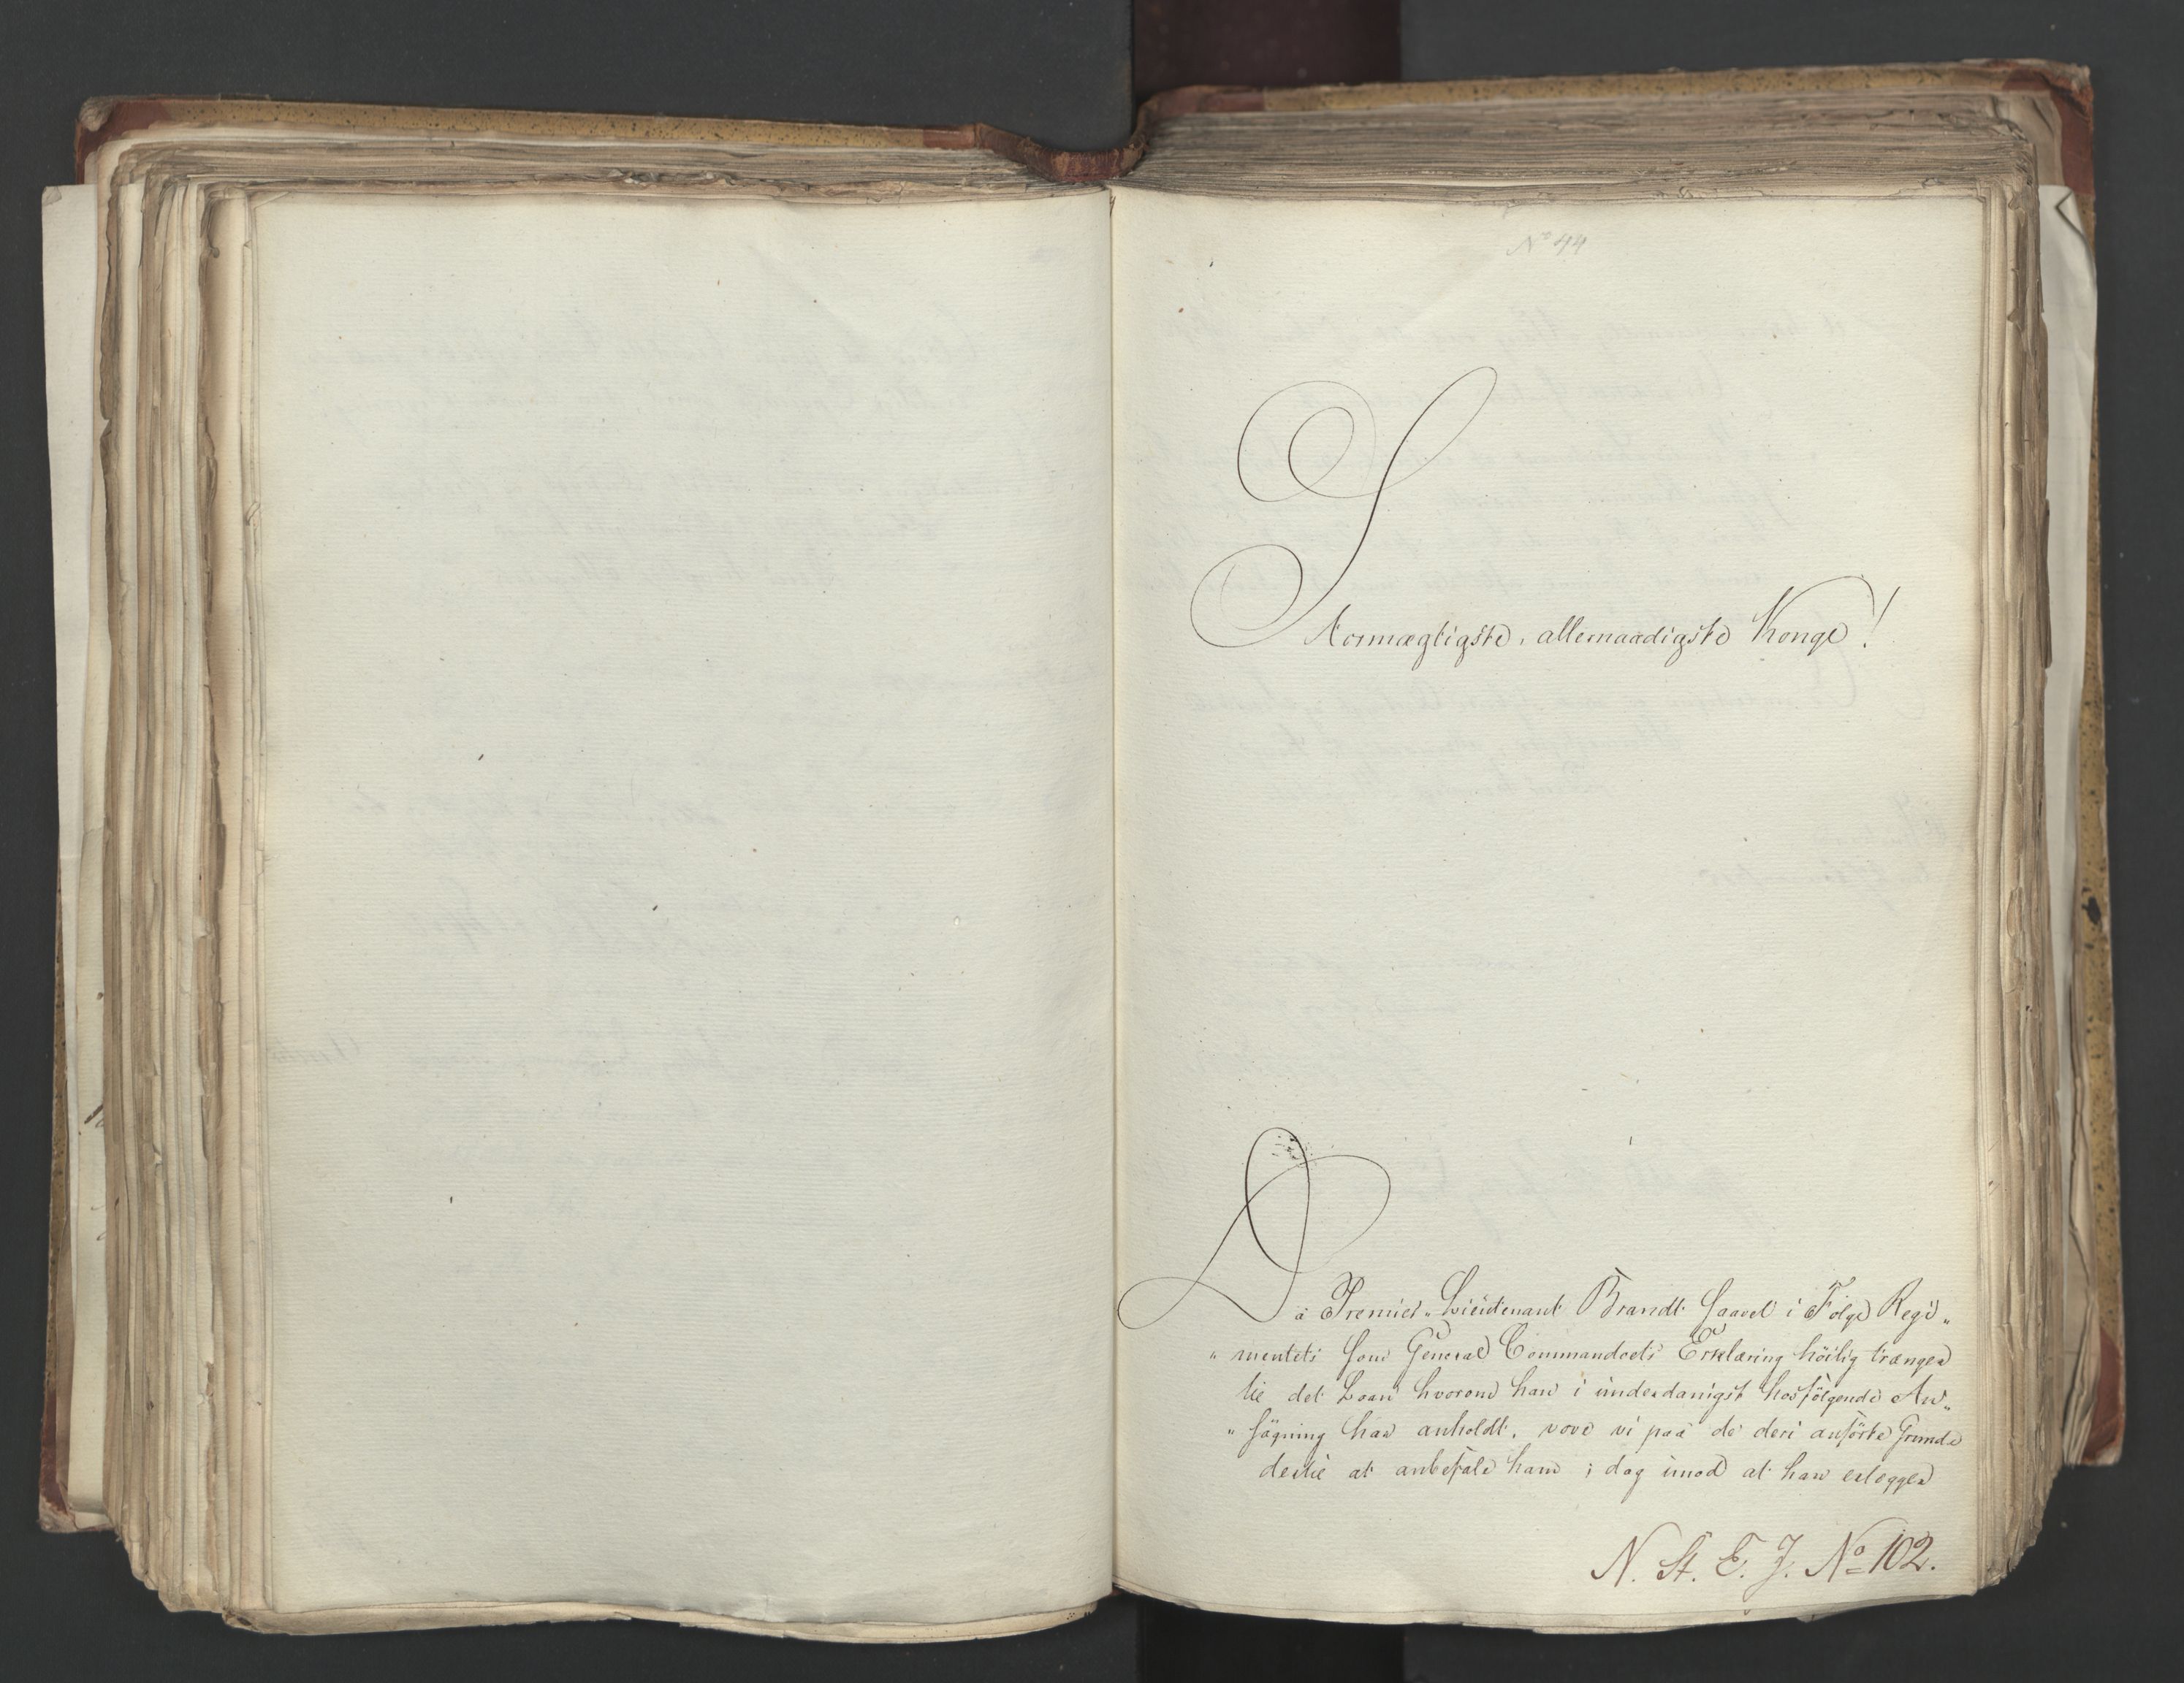 No 44
Stormægtigste, allernaadigste Konge!
Da Premier„Lieutenant Brandt saavel i Følge Regi„
„mentets som General Commandoets Erklæring höilig trænger
til det Laan hvorom han i underdanigst hosfölgende An„
„sögning har anholdt, vove vi paa de deri anförte Grunde
dertil at anbefale ham; dog imod at han erlægger
N. St. E. J. No 102.